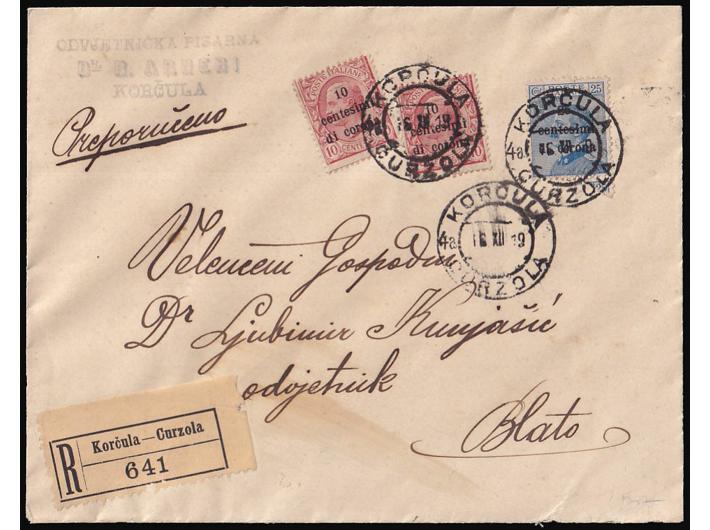 ODVJETNIČKA PISARNA
Dr. R. ARNERI
KORČULA
Preporučeno
POSTE ITALIANE
10
centesimi
di corona
10 CENT
10
centesimi
di corona
10
POSTE
25
centesimi
di corona
KORČULA
4a 16 XII 19
CURZOLA
KORČULA
4a 16 XII
CURZOLA
KORČULA
4a 16 XII 19
CURZOLA
Velecućeni Gospodin
Dr Ljubimir Kunjašić
odvjetnik
Blato
R
Korčula—Curzola
641